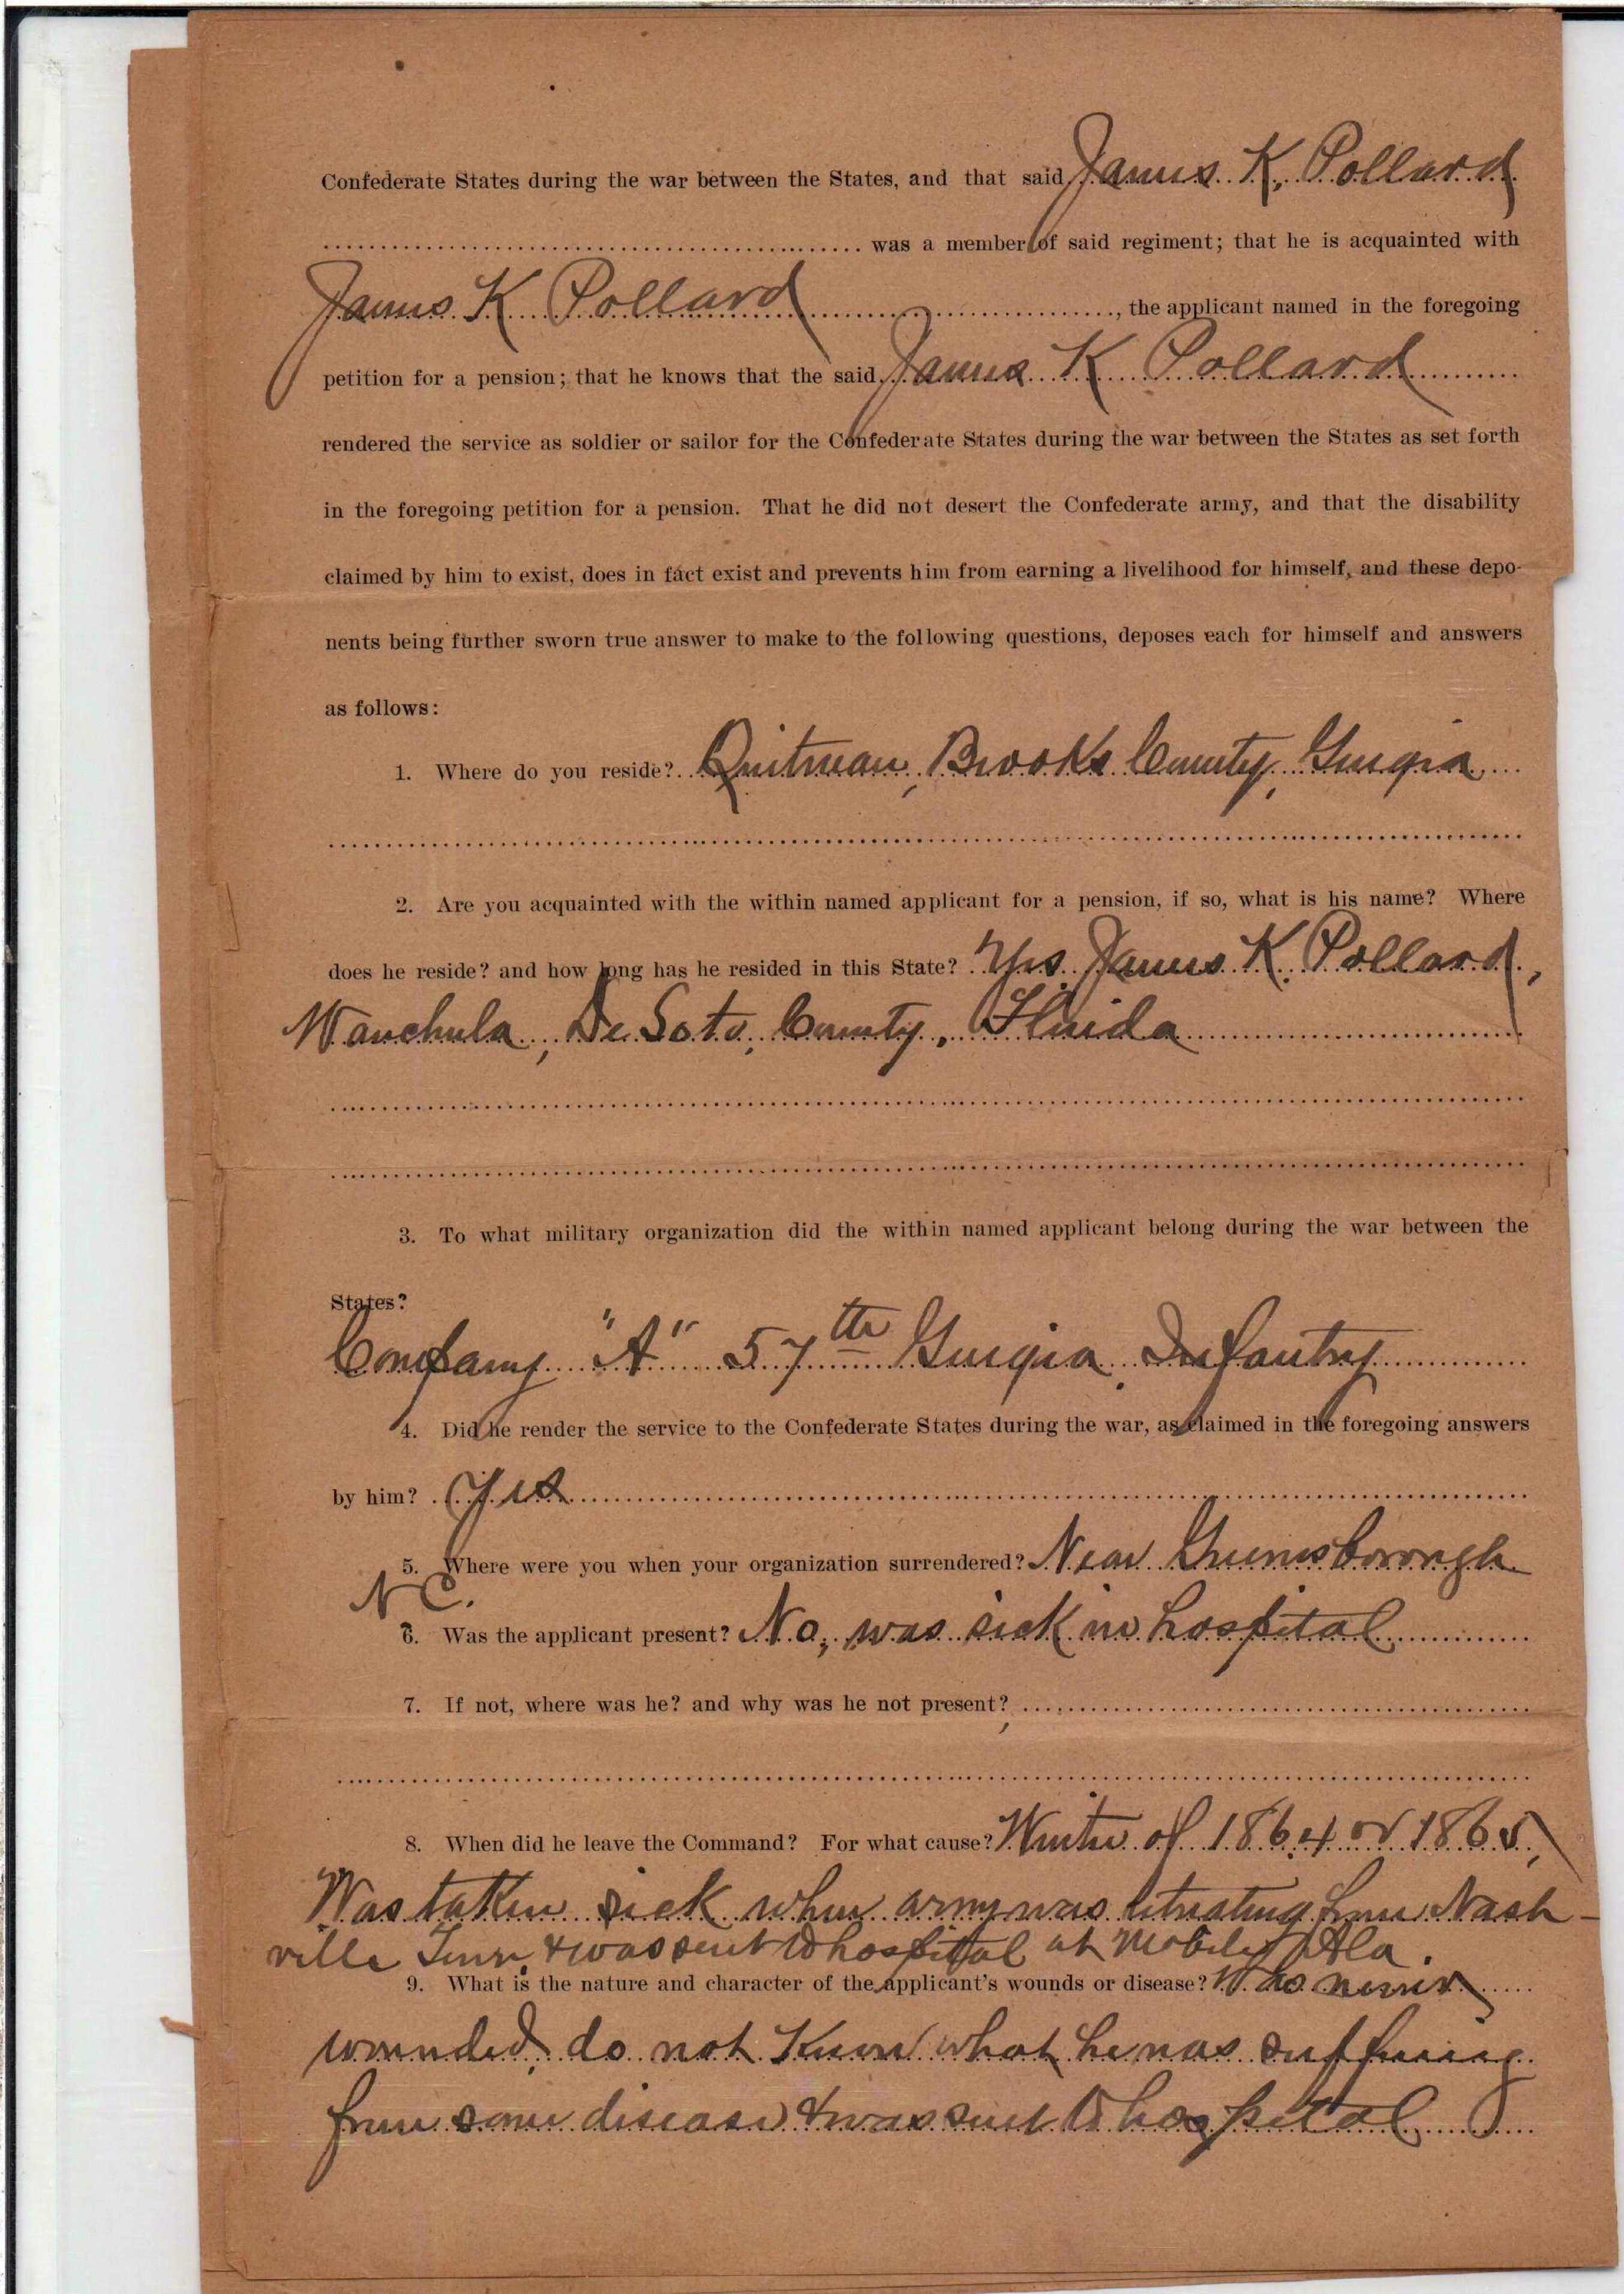 Confederate States during the war between the States, and that said James K. Pollard
was a member of said regiment; that he is acquainted with
James K Pollard, the applicant named in the foregoing
petition for a pension; that he knows that the said James K Pollard
rendered the service as soldier or sailor for the Confederate States during the war between the States as set forth
in the foregoing petition for a pension. That he did not desert the Confederate army, and that the disability
claimed by him to exist, does in fact exist and prevents him from earning a livelihood for himself, and these depo-
nents being further sworn true answer to make to the following questions, deposes each for himself and answers
as follows:
1. Where do you reside? Quitman, Brooks County, Georgia
2. Are you acquainted with the within named applicant for a pension, if so, what is his name? Where
does he reside? and how long has he resided in this State? Yes. James K. Pollard,
Wauchula, De Soto, County, Florida
3. To what military organization did the within named applicant belong during the war between the
States?
Company "A" 57th Georgia Infantry
4. Did he render the service to the Confederate States during the war, as claimed in the foregoing answers
by him? Yes
5. Where were you when your organization surrendered? Near Greensborough
N C.
6. Was the applicant present? No, was sick in hospital
7. If not, where was he? and why was he not present?
8. When did he leave the Command? For what cause? Winter of 1864 or 1865,
Was taken sick when army was retreating from Nash-
ville Tenn. & was sent to hospital at Mobile, Ala.
9. What is the nature and character of the applicant's wounds or disease? Was never
wounded, do not know what he was suffering
from some disease & was sent to hospital